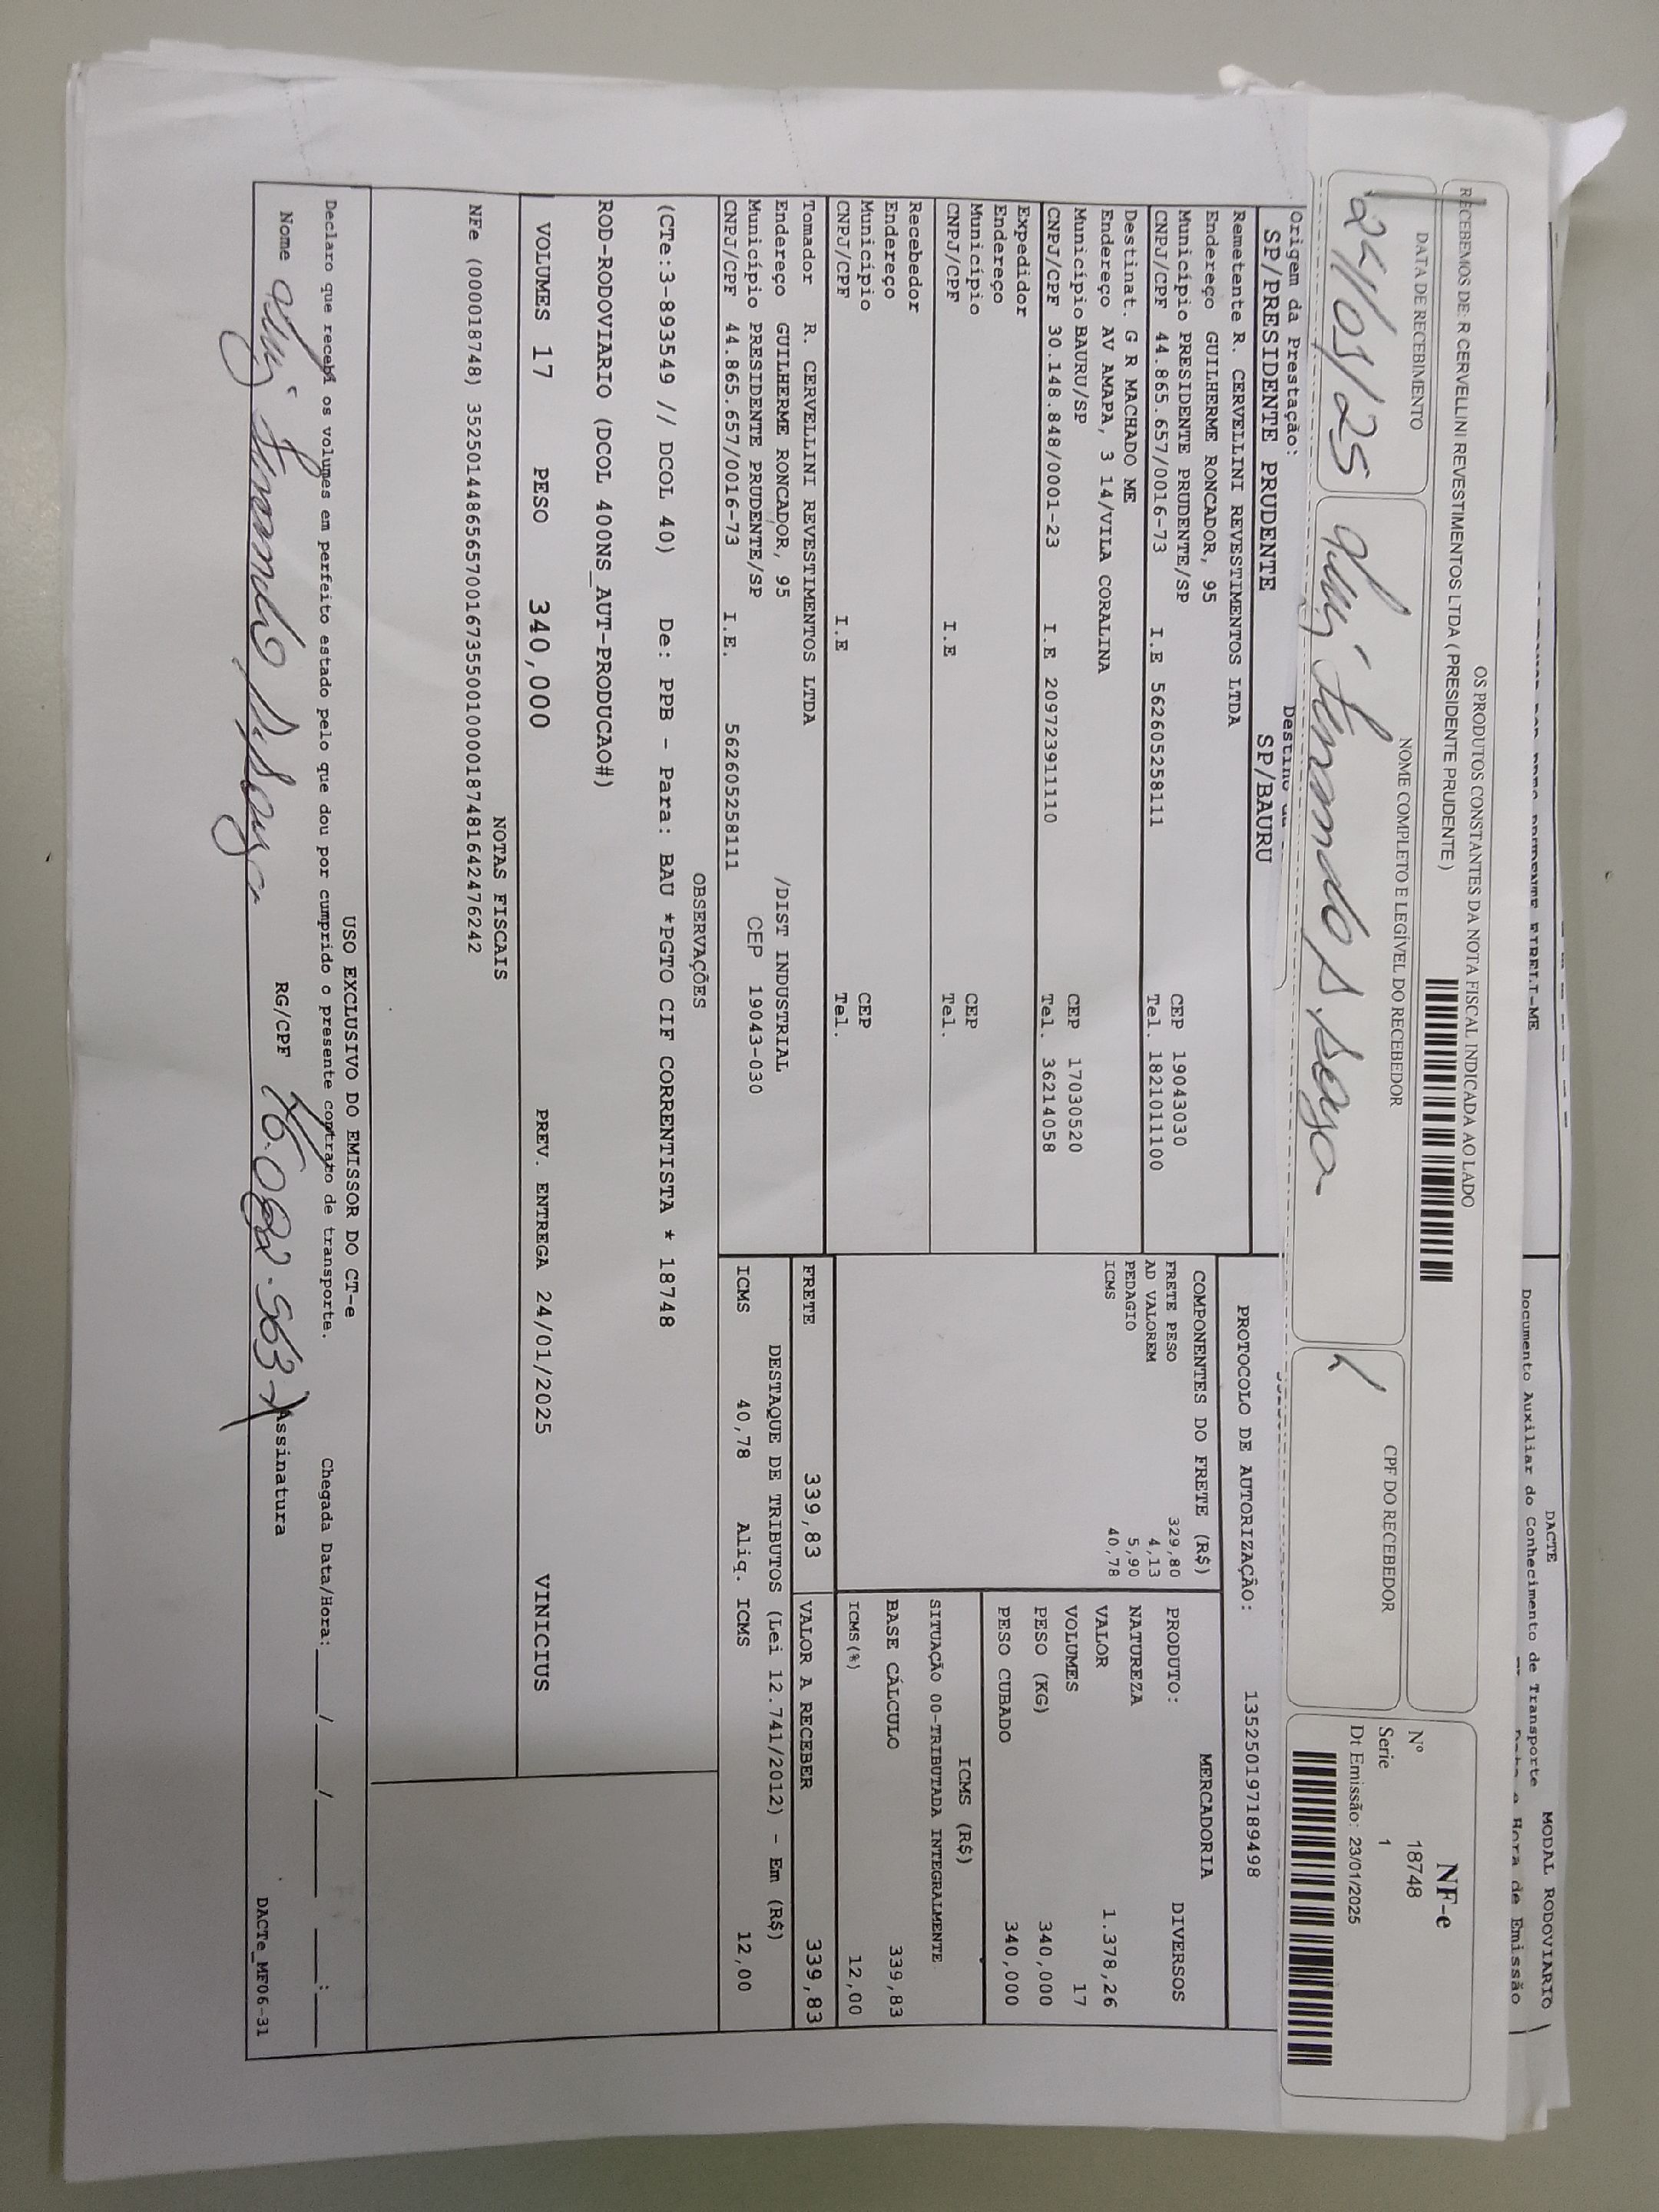 DACTE
MODAL RODOVIARIO
Documento Auxiliar do Conhecimento de Transporte
Hora de Emissão
OS PRODUTOS CONSTANTES DA NOTA FISCAL INDICADA AO LADO
RECEBEMOS DE: R CERVELLINI REVESTIMENTOS LTDA ( PRESIDENTE PRUDENTE )
DATA DE RECEBIMENTO
NOME COMPLETO E LEGÍVEL DO RECEBEDOR
CPF DO RECEBEDOR
24/01/25
NF-e
Nº 18748
Serie 1
Dt Emissão: 23/01/2025
Origem da Prestação:
SP/PRESIDENTE PRUDENTE
SP/BAURU
PROTOCOLO DE AUTORIZAÇÃO: 135250197189498
Remetente R. CERVELLINI REVESTIMENTOS LTDA
Endereço GUILHERME RONCADOR, 95
Município PRESIDENTE PRUDENTE/SP CEP 19043030
CNPJ/CPF 44.865.657/0016-73 I.E 562605258111 Tel. 1821011100
Destinat. G R MACHADO ME
Endereço AV AMAPA, 3 14/VILA CORALINA
Município BAURU/SP CEP 17030520
CNPJ/CPF 30.148.848/0001-23 I.E 209723911110 Tel. 36214058
Expedidor
Endereço
Município CEP
CNPJ/CPF I.E Tel.
Recebedor
Endereço
Município CEP
CNPJ/CPF I.E Tel.
Tomador R. CERVELLINI REVESTIMENTOS LTDA
Endereço GUILHERME RONCADOR, 95 /DIST INDUSTRIAL
Município PRESIDENTE PRUDENTE/SP CEP 19043-030
CNPJ/CPF 44.865.657/0016-73 I.E. 562605258111
COMPONENTES DO FRETE (R$)
FRETE PESO 329,80
AD VALOREM 4,13
PEDAGIO 5,90
ICMS 40,78
MERCADORIA
PRODUTO: DIVERSOS
NATUREZA
VALOR 1.378,26
VOLUMES 17
PESO (KG) 340,000
PESO CUBADO 340,000
ICMS (R$)
SITUAÇÃO 00-TRIBUTADA INTEGRALMENTE
BASE CÁLCULO 339,83
ICMS(%) 12,00
FRETE 339,83 VALOR A RECEBER 339,83
DESTAQUE DE TRIBUTOS (Lei 12.741/2012) - Em (R$)
ICMS 40,78 Aliq. ICMS 12,00
OBSERVAÇÕES
(CTe:3-893549 // DCOL 40) De: PPB - Para: BAU *PGTO CIF CORRENTISTA * 18748
ROD-RODOVIARIO (DCOL 400NS_AUT-PRODUCAO#)
VOLUMES 17 PESO 340,000 PREV. ENTREGA 24/01/2025 VINICIUS
NOTAS FISCAIS
NFe (000018748) 35250144865657001673550010000187481642476242
USO EXCLUSIVO DO EMISSOR DO CT-e
Declaro que recebi os volumes em perfeito estado pelo que dou por cumprido o presente contrato de transporte. Chegada Data/Hora: ____/____/____ ____:____
Nome RG/CPF Assinatura
DACTe_MF06-31